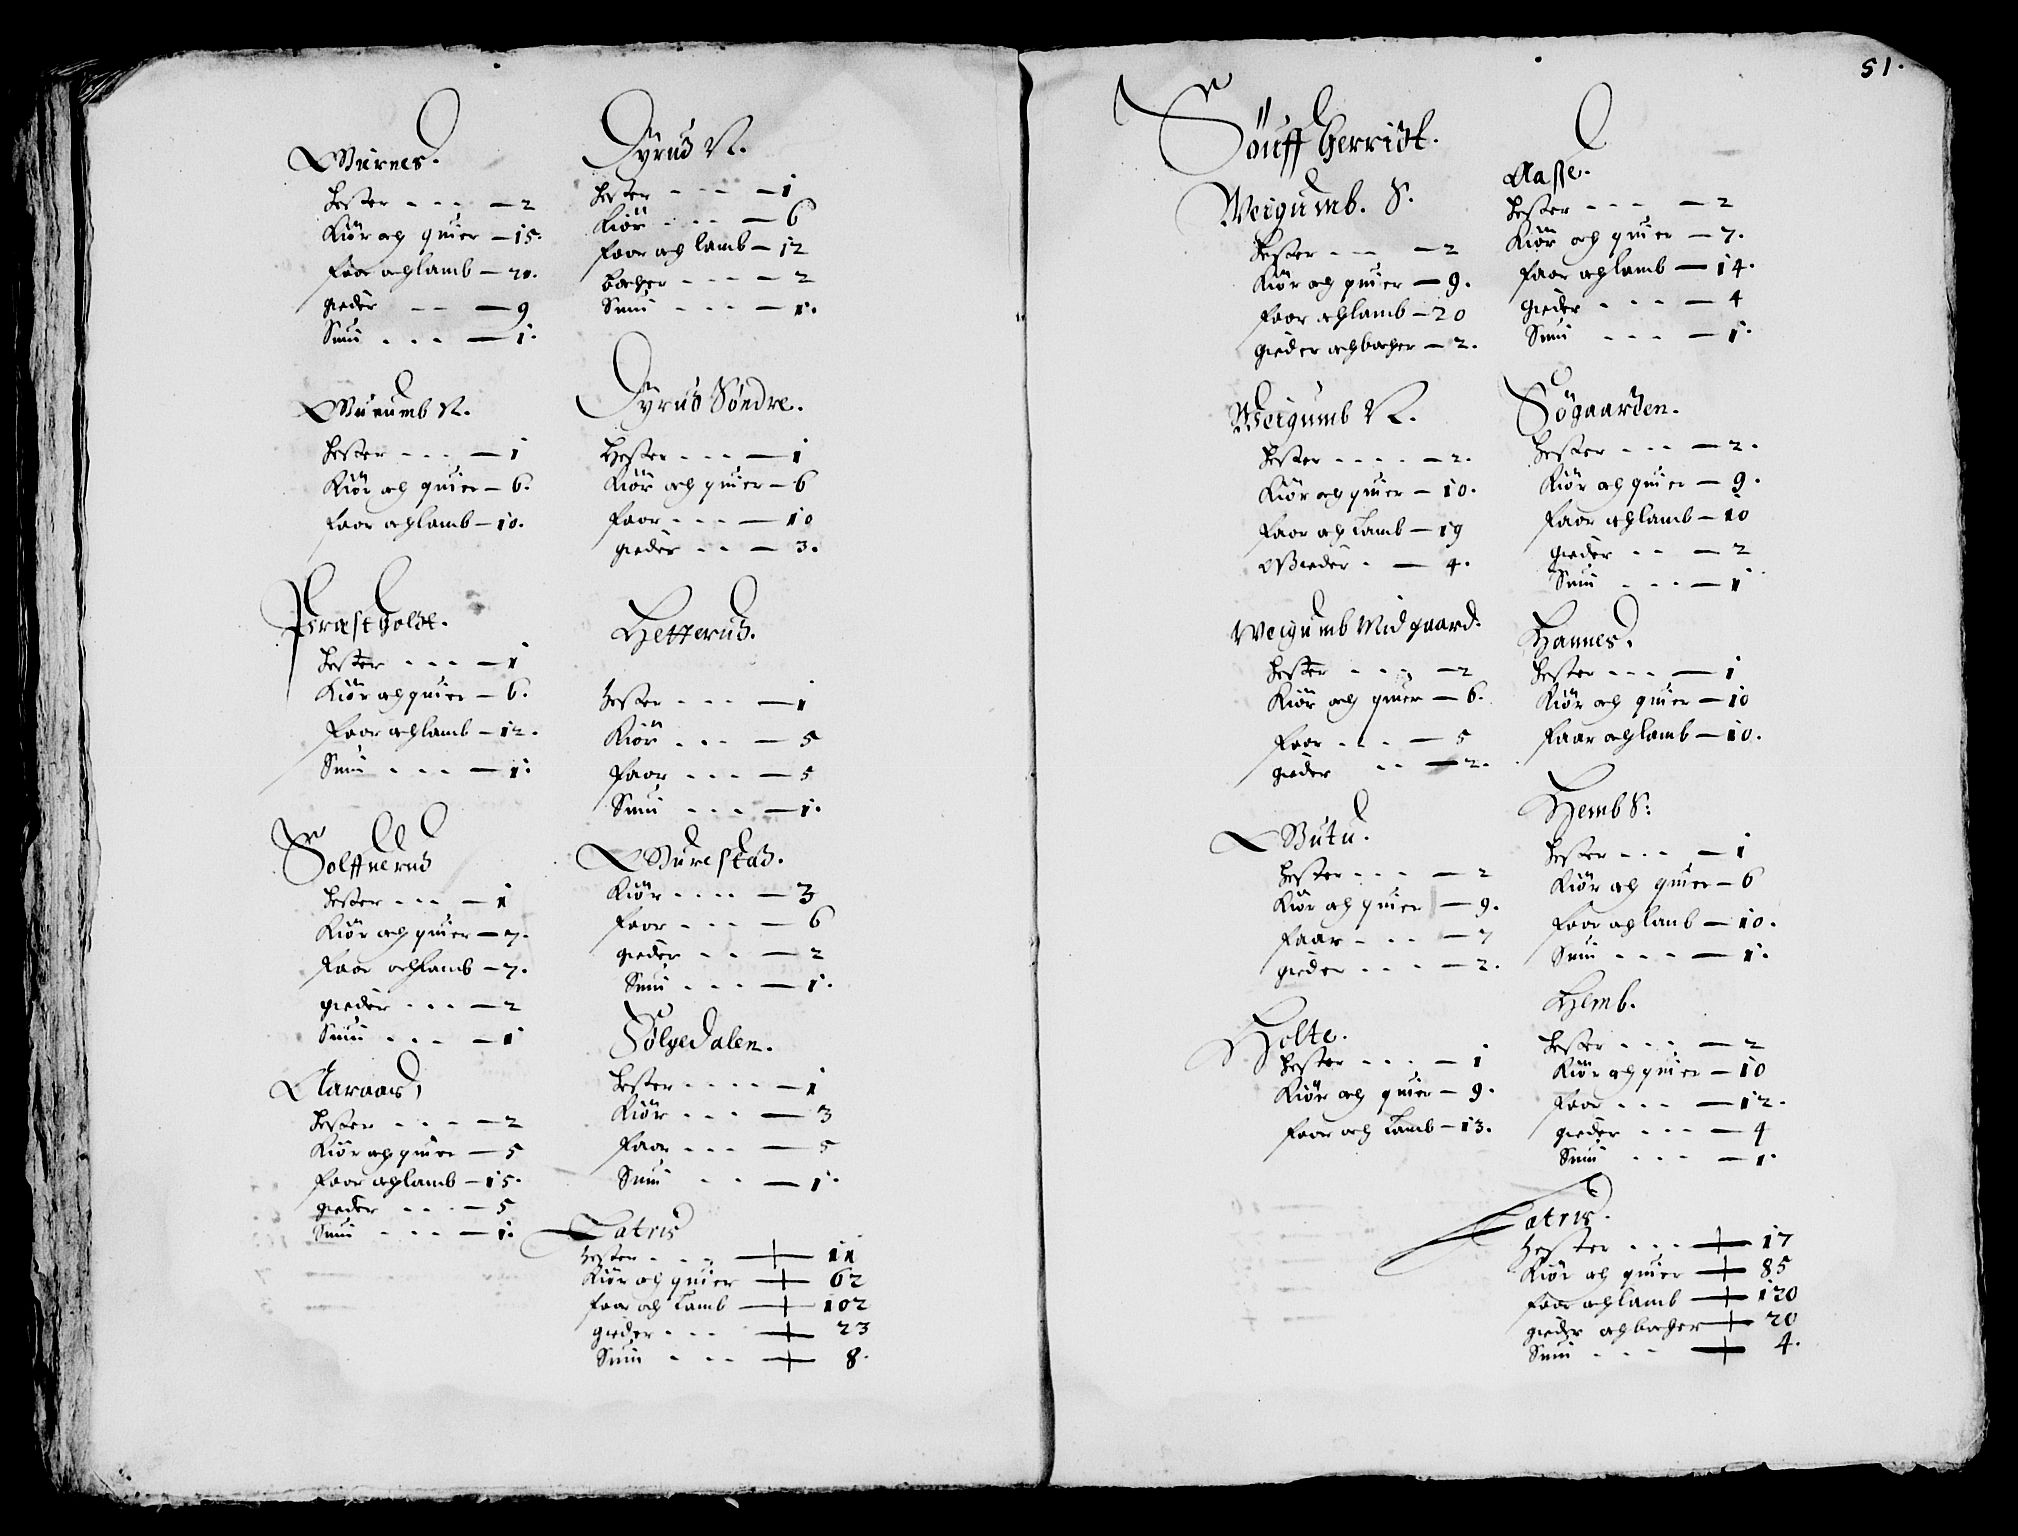 Huirnes.
Hester - - - 2
Kiör och quier - 15.
Faar och lamb - 20.
gieder - - 9
Suin - - - 1.
Hester - - - 1
Kiör och quier - 6.
Faar och lamb - 10.
Præstholdt.
Hester - - - 1
Kiör och quier - 6.
Faar och lamb - 12.
Suin - - - 1.
Solffuerud
Hester - - - 1
Kiör och quier - 7.
Faar och lamb - 7.
gieder - - - 2
Suin - - - 1
Aaraas
Hester - - - 2
Kiör och quier - 5
Faar och lamb - 15.
gieder - - - 5
Suin - - - 1.
Dyrud N.
Hester - - - 1
Kiör - - - 6
Faar och lamb - 12
bocher - - - 2
Suin - - - 1.
Dyrud Söndre.
Hester - - - 1
Kiör och quier - 6
Faar - - - 10
gieder - - - 3.
Hetterud.
Hester - - - 1
Kiör - - - 5
Faar - - - 5
Suin - - - 1.
Kiör - - - - 3
Faar - - - 6
gieder - - - 2
Suin - - - 1.
Sølgedalen.
Hester - - - - 1
Kiör - - - 3
Faar - - - 5
Suin - - 1.
Latris
Hester - - - 11
Kiör och quier - 62
Faar och Lamb - 102
gieder - - - 23
Suin - - - 8.
51.
Söuff Herridt.
Weigumb. S.
Hester - - - 2
Kiör och quier - 9.
Faar och lamb - 20
gieder och bocher - 2.
Weigumb N.
Hester - - - - 2.
Kiör och quier - 10.
Faar och Lamb - 19
Gieder - - 4.
Weigumb Midgaard.
Hester - - - 2
Kiör och quier - 6.
Faar - - - 5
gieder - - 2.
Hester - - - 2
Kiör och quier - 9.
Faar - - - 7
gieder - - - - 2.
Holte.
Hester - - - 1
Kiör och quier - 9.
Faar och Lamb - 13.
Aaße.
Hester - - - 2
Kiör och quier - 7.
Faar och lamb - 14.
gieder - - - 4
Suin - - - 1.
Søgaarden.
Hester - - - 2.
Kiör och quier - 9.
Faar och lamb - 10
gieder - - 2
Suin - - - 1
Hannes.
Hester - - - 1
Kiör och quier - 10
Faar och lamb - 10.
Hemb S:
Hester - - - 1
Kiör och quier - 6
Faar och lamb - 10.
Suin - - - - 1.
Hemb.
Hester - - - 2
Kiör och quier - 10
Faar - - - 12.
gieder - - - 4
Suin - - - 1.
Latris.
Hester - - - 17
Kiör och quier - 85
Faar och lamb - 120
gieder och bocher - 20
Suin - - - 4.